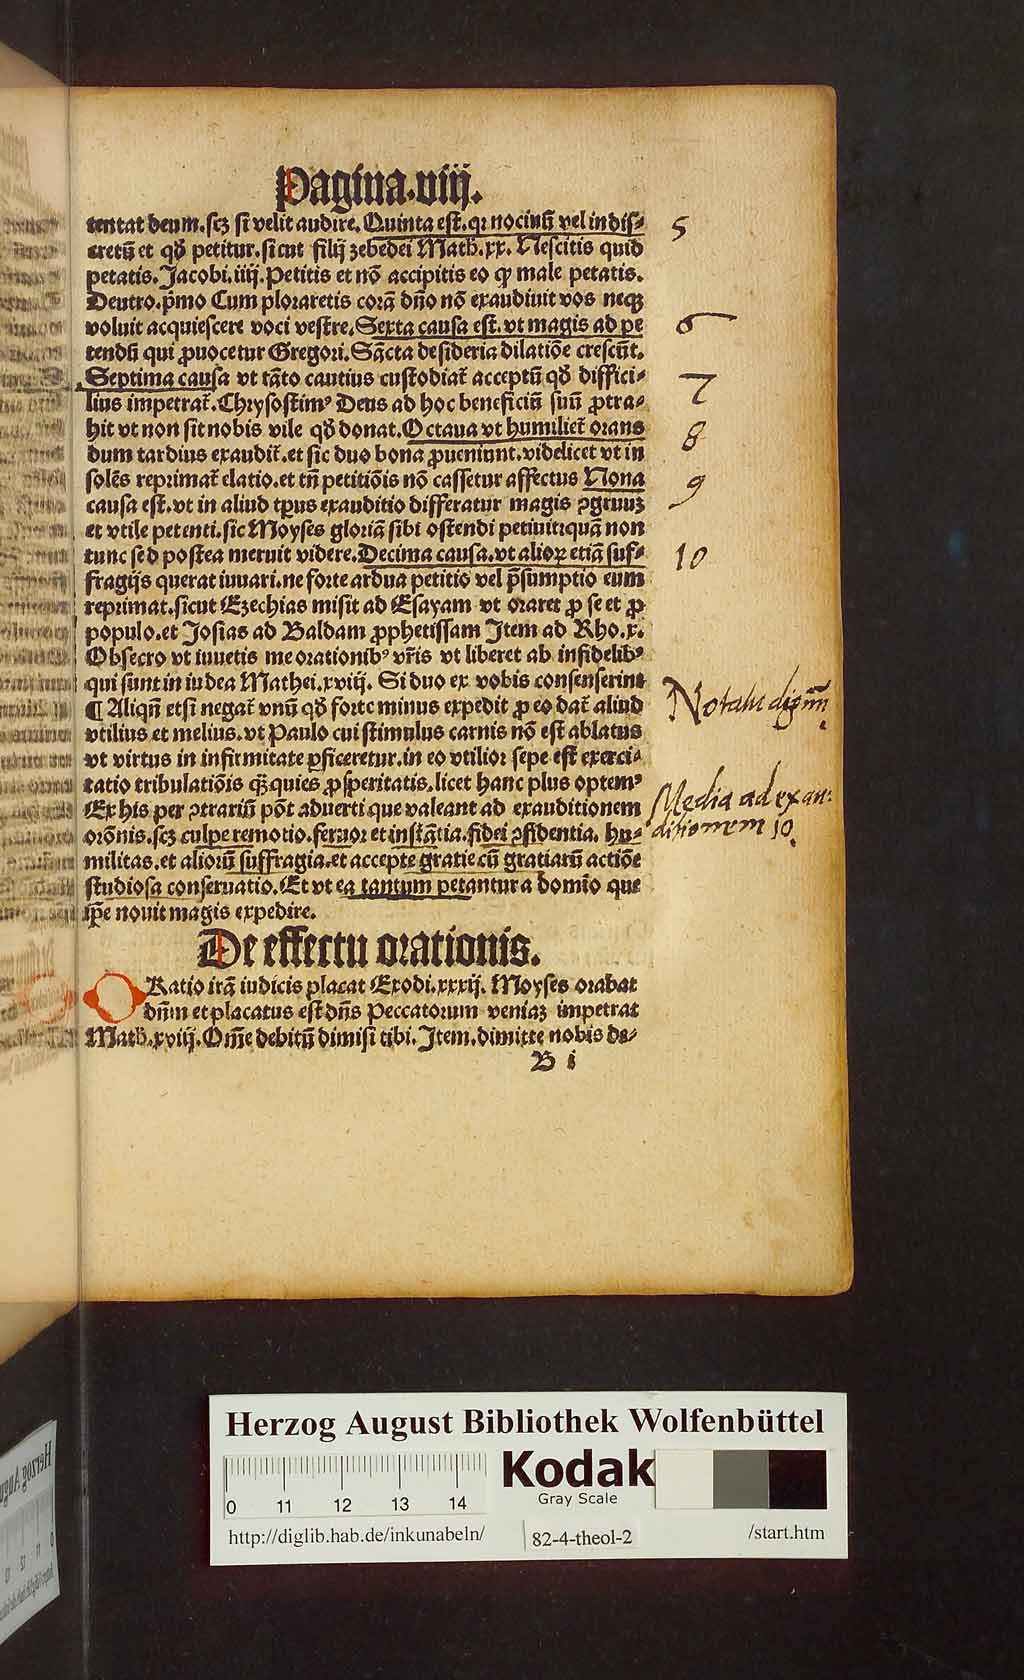 Pagina.viij.
tentat deum.scꝫ si velit audire.Quinta est.qꝛ nociuũ vel indis-
cretũ et qð petitur.sicut filij zebedei Math.xx. Nescitis quid
petatis.Jacobi.iiij.Petitis et nõ accipitis eo ꝙ male petatis.
Deutro.p̃mo Cum ploraretis corã dño nõ exaudiuit vos neqꝫ
voluit acquiescere voci vestre.Sexta causa est.vt magis ad pe
tendũ qui ꝓuocetur Gregori.Sãcta desideria dilatiõe crescũt.
Septima causa vt tãto cautius custodiat̃ acceptũ qð diffici-
lius impetrat̃.Chrysostimꝰ Deus ad hoc beneficiũ suũ ꝓtra-
hit vt non sit nobis vile qð donat.Octaua vt humiliet̃ orans
dum tardius exaudit̃.et sic duo bona ꝓueniunt.videlicet vt in
solẽs reprimat̃ elatio.et tñ petitiõis nõ cassetur affectus Nona
causa est.vt in aliud tp̃us exauditio differatur magis ꝯgruuꝫ
et vtile petenti.sic Moyses gloriã sibi ostendi petiuit:quã non
tunc sed postea meruit videre.Decima causa.vt alioꝝ etiã suf-
fragijs querat iuuari.ne forte ardua petitio vel p̃sumptio eum
reprimat.sicut Ezechias misit ad Esayam vt oraret ꝓ se et ꝓ
populo.et Josias ad Baldam ꝓphetissam Item ad Rho.x.
Obsecro vt iuuetis me orationibꝰ vr̃is vt liberet ab infidelibꝰ
qui sunt in iudea Mathei.xviij. Si duo ex vobis consenserint
¶ Aliqñ etsi negat̃ vnũ qð forte minus expedit ꝓ eo dat̃ aliud
vtilius et melius.vt Paulo cui stimulus carnis nõ est ablatus
vt virtus in infirmitate ꝑficeretur.in eo vtilior sepe est exerci-
tatio tribulatiõis qꝫ̃ quies ꝓsperitatis.licet hanc plus optemꝰ
Ex his per ꝯtrariũ põt aduerti que valeant ad exauditionem
orõnis.scꝫ culpe remotio.feruor et instãtia.fidei ꝯfidentia. hu-
militas.et aliorũ suffragia.et accepte gratie cũ gratiarũ actiõe
studiosa conseruatio.Et vt ea tantum petantur a domĩo que
ip̃e nouit magis expedire.
De effectu orationis.
ORatio irã iudicis placat Exodi.xxxij. Moyses orabat
dñm et placatus est dñs Peccatorum veniaꝫ impetrat
Math.xviij.Om̃e debitũ dimisi tibi.Item.dimitte nobis de-
B i
5
6
7
8
9
10
Notatu dignũ
Media ad exau:
ditionem 10.
Herzog August Bibliothek Wolfenbüttel
0 11 12 13 14
Kodak
Gray Scale
http://diglib.hab.de/inkunabeln/
82-4-theol-2
/start.htm